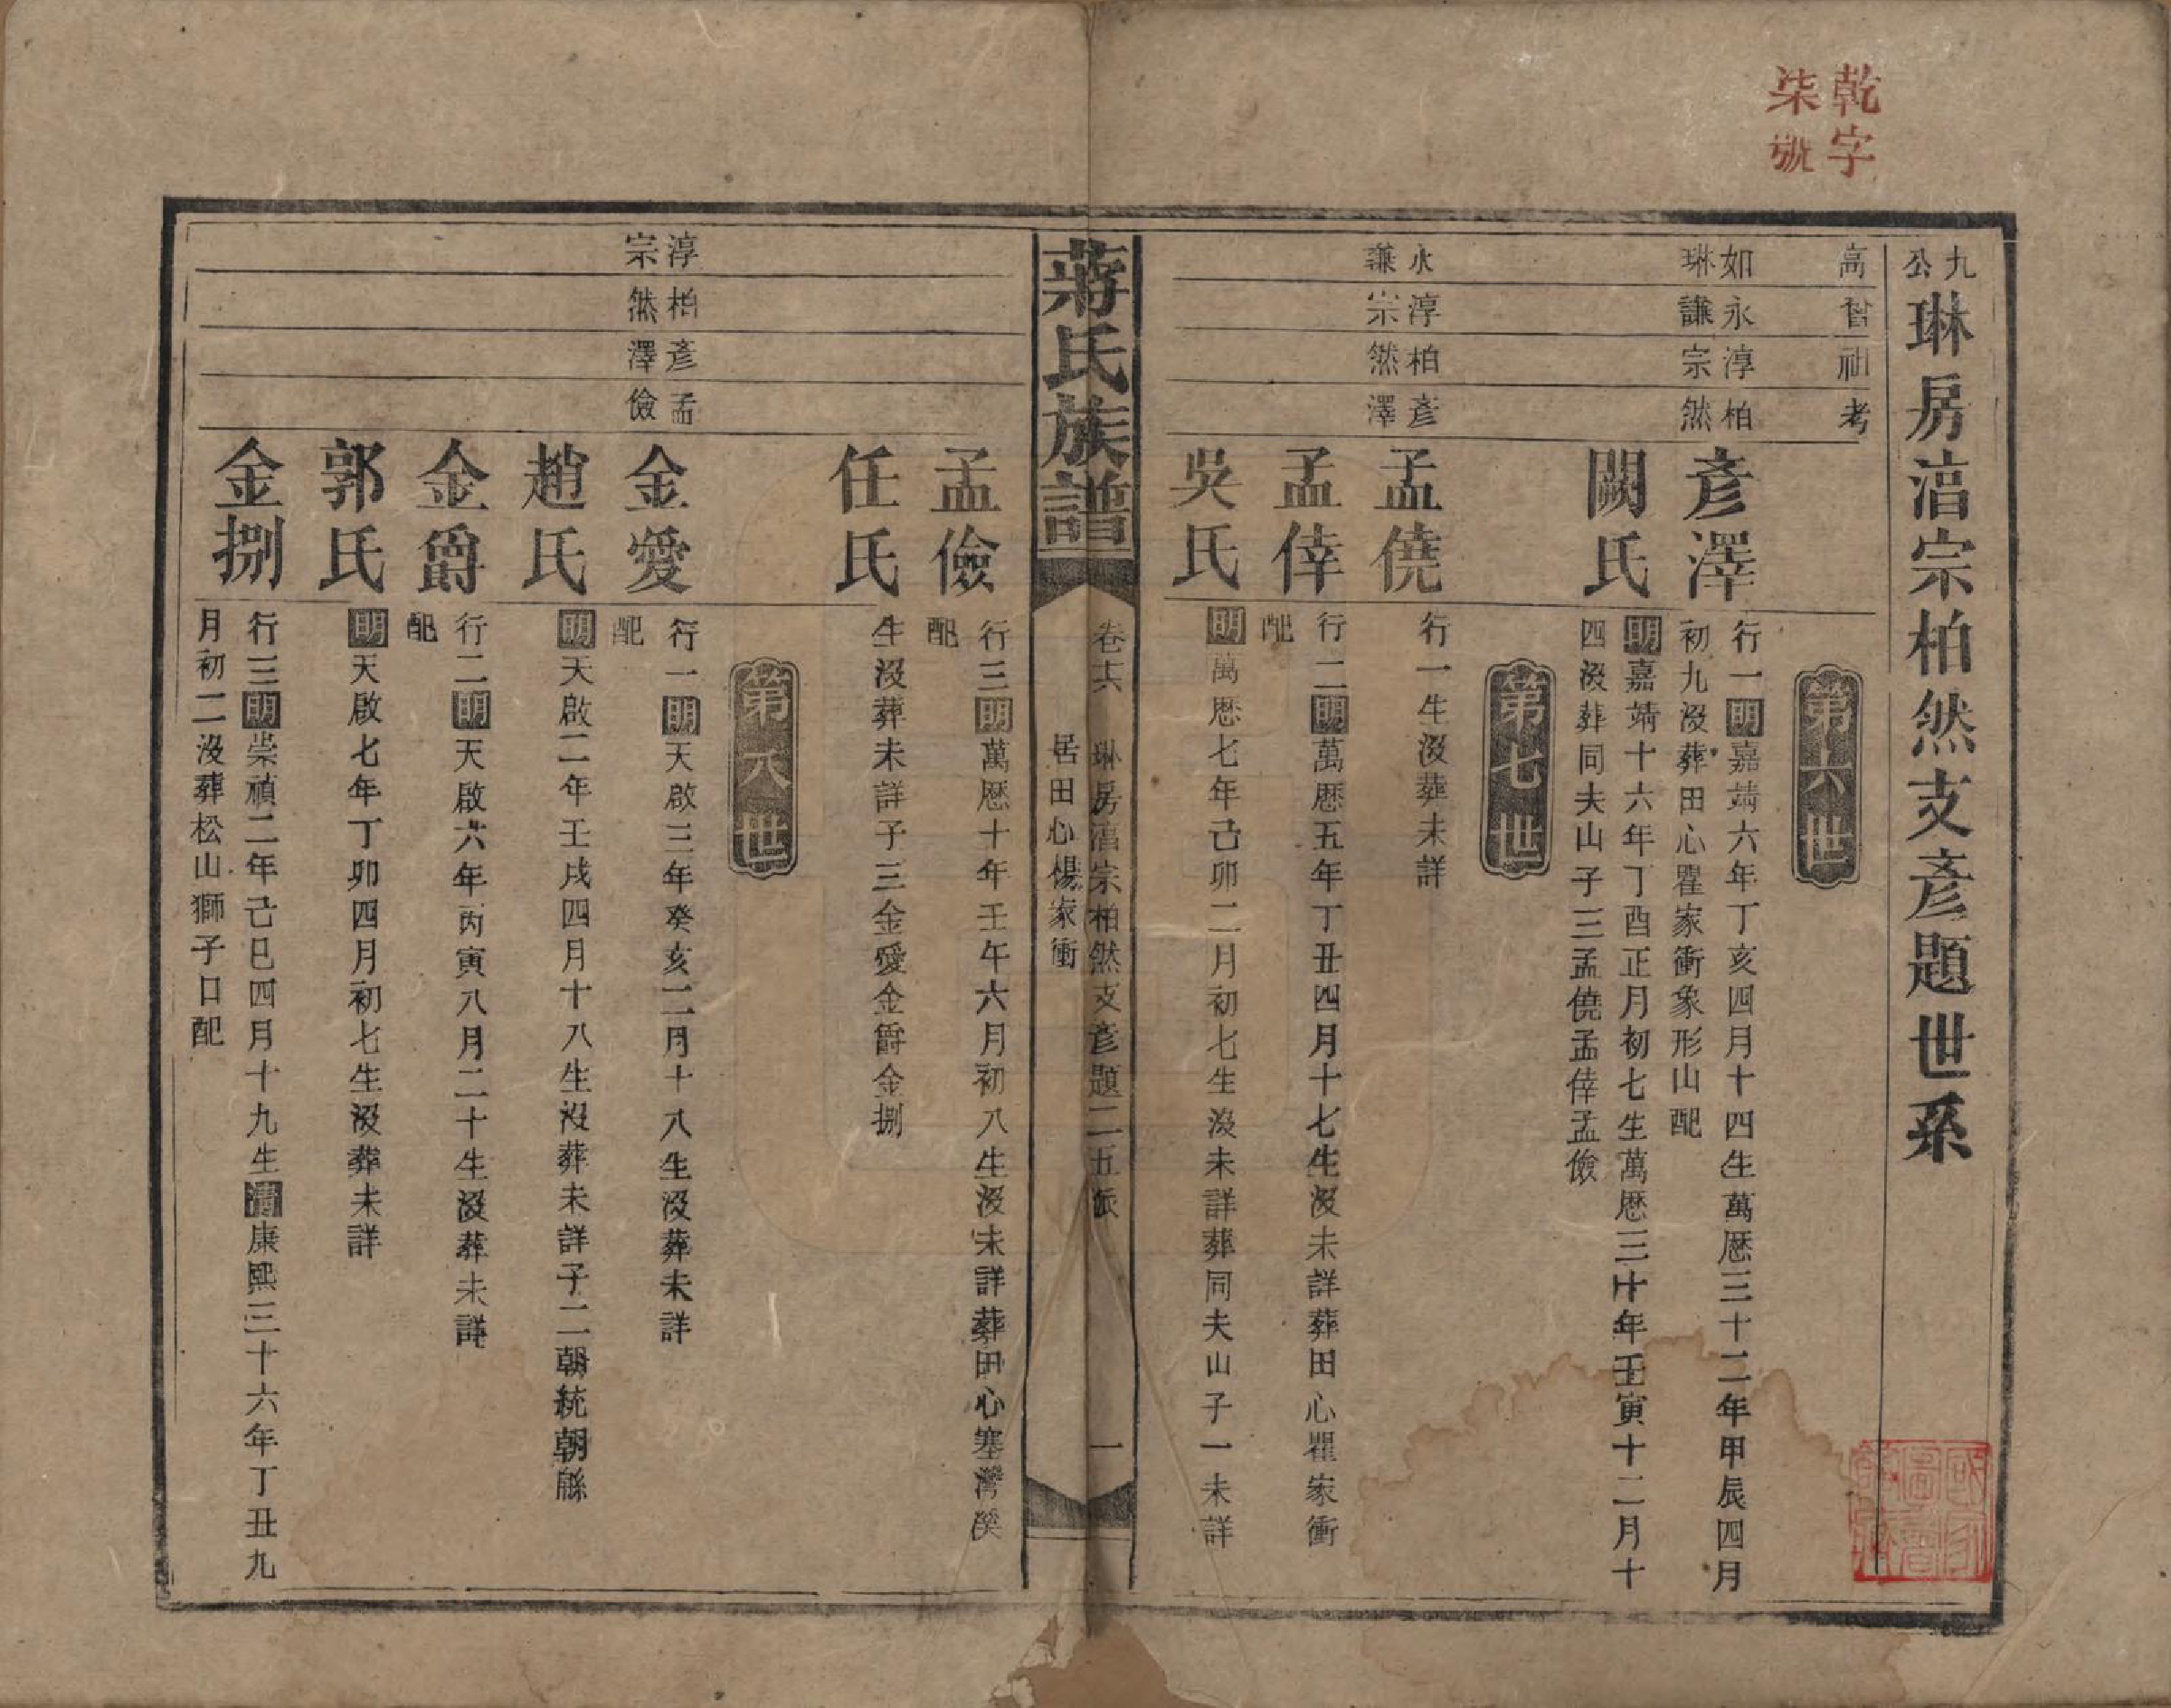 乾字
柒號
九公琳房湻宗柏然支彥題世系
高 曾 祖 考
第六世
如琳 永謙 淳宗 柏然
彥澤
行一明嘉靖六年丁亥四月十四生萬歷三十二年甲辰四月
初九沒葬田心瞿家衝象形山配
闕氏
明嘉靖十六年丁酉正月初七生萬歷三十年壬寅十二月十
四沒葬同夫山子三孟僥孟倖孟儉
第七世
永謙 淳宗 柏然 彥澤
孟僥
行一生沒葬未詳
孟倖
行二明萬歷五年丁丑四月十七生沒未詳葬田心瞿家衝
配
吳氏
明萬歷七年己卯二月初七生沒未詳葬同夫山子一未詳
蔣氏族譜
卷六 琳房湻宗柏然支彥題二五派 一
居田心楊家衝
孟儉
行三明萬歷十年壬午六月初八生沒未詳葬田心塞灣
配
任氏
生沒葬未詳子三金愛金爵金捌
第八世
淳宗 柏然 彥澤 孟儉
金愛
行一明天啟三年癸亥二月十八生沒葬未詳
配
趙氏
明天啟二年壬戌四月十八生沒葬未詳子二朝統朝緜
金爵
行二明天啟六年丙寅八月二十生沒葬未詳
配
郭氏
明天啟七年丁卯四月初七生沒葬未詳
金捌
行三明崇禎二年己巳四月十九生清康熙三十六年丁丑九
月初二沒葬松山獅子口配